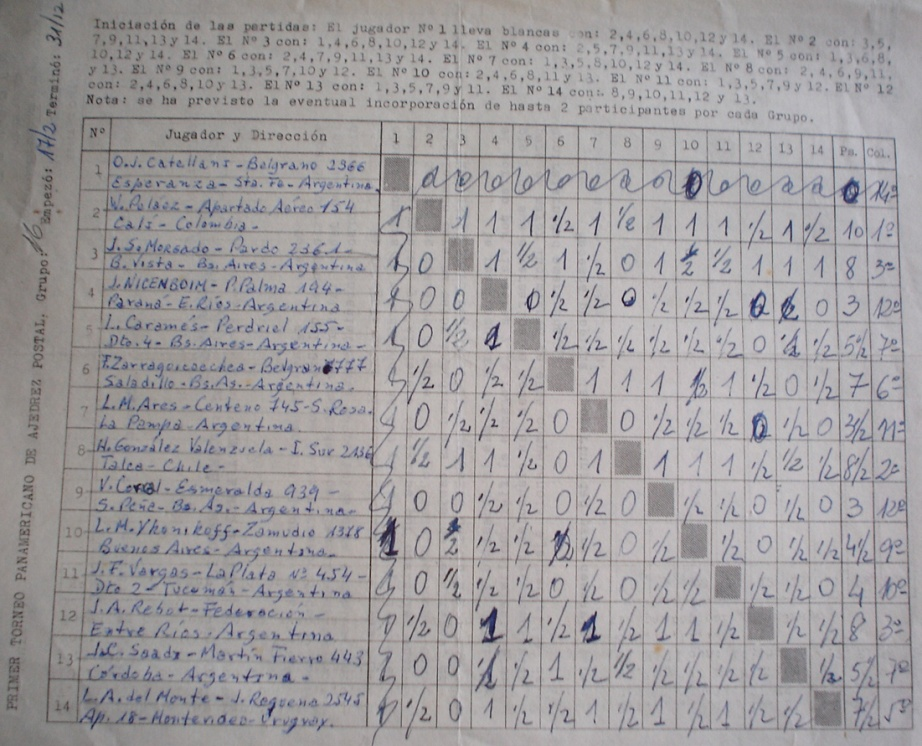 Iniciación de las partidas: El jugador Nº 1 lleva blancas con: 2,4,6,8,10,12 y 14. El Nº 2 con: 3,5,
7,9,11,13 y 14. El Nº 3 con: 1,4,6,8,10,12 y 14. El Nº 4 con: 2,5,7,9,11,13 y 14. El Nº 5 con: 1,3,6,8,
10,12 y 14. El Nº 6 con: 2,4,7,9,11,13 y 14. El Nº 7 con: 1,3,5,8,10,12 y 14. El Nº 8 con: 2,4,6,9,11
y 13. El Nº 9 con: 1,3,5,7,10 y 12. El Nº 10 con: 2,4,6,8,11 y 13. El Nº 11 con: 1,3,5,7,9 y 12. El Nº 12
con: 2,4,6,8,10 y 13. El Nº 13 con: 1,3,5,7,9 y 11. El Nº 14 con: 8,9,10,11,12 y 13.
Nota: se ha previsto la eventual incorporación de hasta 2 participantes por cada Grupo.
PRIMER TORNEO PANAMERICANO DE AJEDREZ POSTAL. Grupo: 16 Empezó: 17/2 Terminó: 31/12
Nº Jugador y Dirección 1 2 3 4 5 6 7 8 9 10 11 12 13 14 Ps. Col.
1 O.J. Catellans - Belgrano 2366
Esperanza - Sta. Fe - Argentina. 0 14º
2 W. Pelaez - Apartado Aéreo 154
Cali - Colombia - 1 1 1 1 1/2 1 1/2 1 1 1 1/2 1 1/2 10 1º
3 J.S. Morgado - Pardo 2361 -
B. Vista - Bs. Aires - Argentina 1 0 1 1/2 1 1/2 0 1 1/2 1/2 1 1 1 8 3º
4 J. NICENBOIM - P. Palma 194 -
Paraná - E. Ríos - Argentina 1 0 0 0 1/2 1/2 0 1/2 1/2 1/2 0 0 3 12º
5 L. Caramés - Perdriel 155 -
Dto. 4 - Bs. Aires - Argentina. 1 0 1/2 1 1/2 1/2 1/2 1/2 1/2 1/2 0 1/2 1/2 5 1/2 7º
6 F. Zarragoicoechea - Belgrano 777
Saladillo - Bs. As. - Argentina. 1/2 0 1/2 1/2 1 1 1 1/2 1 1/2 0 1/2 7 6º
7 L.M. Ares - Centeno 745 - S. Rosa.
La Pampa - Argentina. 0 1/2 1/2 1/2 0 0 1/2 1/2 1/2 0 1/2 0 3 1/2 11º
8 H. González Valenzuela - I. Sur 2136
Talca - Chile - 1/2 1 1 1/2 0 1 1 1 1 1/2 1/2 1/2 8 1/2 2º
9 V. - Esmeralda 939 -
S. Peña - Bs. As. - Argentina. 0 0 1/2 1/2 0 1/2 0 1/2 1/2 0 1/2 0 3 12º
10 L.M. Ykonikoff - Zamudio 1318
Buenos Aires - Argentina. 1 0 1/2 1/2 1/2 1/2 1/2 0 1/2 1/2 0 1/2 1/2 4 1/2 9º
11 J.F. Vargas - La Plata Nº 454 -
Dto 2 - Tucumán - Argentina 0 1/2 1/2 1/2 0 1/2 0 1/2 1/2 1/2 1/2 0 4 10º
12 J.A. Rebot - Federación -
Entre Ríos - Argentina 1/2 0 1 1 1/2 1 1/2 1 1 1/2 1/2 1/2 8 3º
13 J.C. Saadi - Martín Fierro 443
Córdoba - Argentina - 0 0 1/2 1 1/2 1/2 1/2 1/2 1/2 1/2 1/2 5 1/2 7º
14 L.A. del Monte - J. Requena 2545
Ap. 18 - Montevideo Uruguay. 1/2 0 1 1/2 1/2 1 1/2 1 1/2 1 1/2 1/2 7 1/2 5º